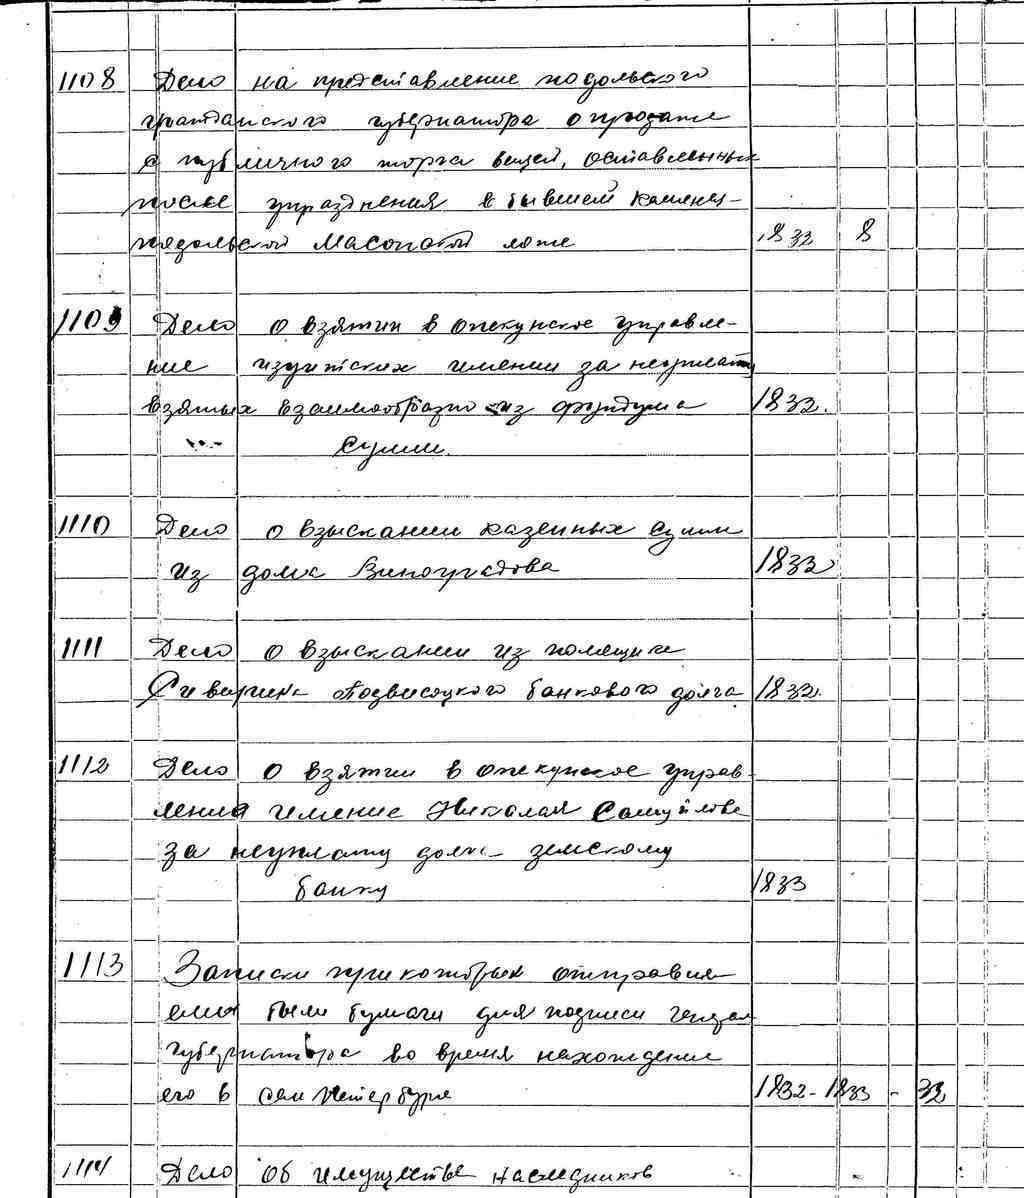 1108 Дело на представление подольского
гражданского губернатора о продаже
с публичного торга вещей, оставленных
после упразднения в бывшей Каменец-
подольской Масонской ложе 1832 8
1109 Дело о взятии в опекунское управле-
ние иезуитских имении за неуплату
взятых взаимообразно из фундуша 1832.
сумм.
1110 Дело о взыскании казенных сумм
из дома Виноградова 1832
1111 Дело о взыскании из помещика
Северина Подвисоцкого банкового долга 1832.
1112 Дело о взятии в опекунское управ-
ления имение Николая Самуйлова
за неуплату долга земскому
банку 1833
1113 Записки при которых отправля-
емы были бумаги для подписи
губернатора во время нахождения
его в Сан Петербурге 1832-1833 - 32
1114 Дело об имуществе наследников